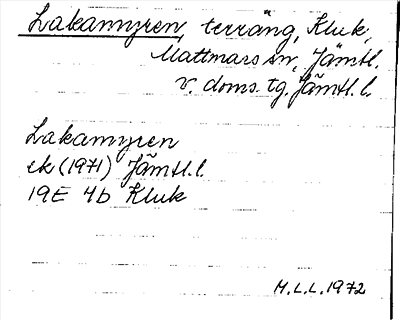 Lakamyren, terräng, Kluk,
Mattmars sn, Jämtl.
v. doms. tg. Jämtl. l.
Lakamyren
ek (1971) Jämtl. l.
19E 4b Kluk
M.L.L. 1972